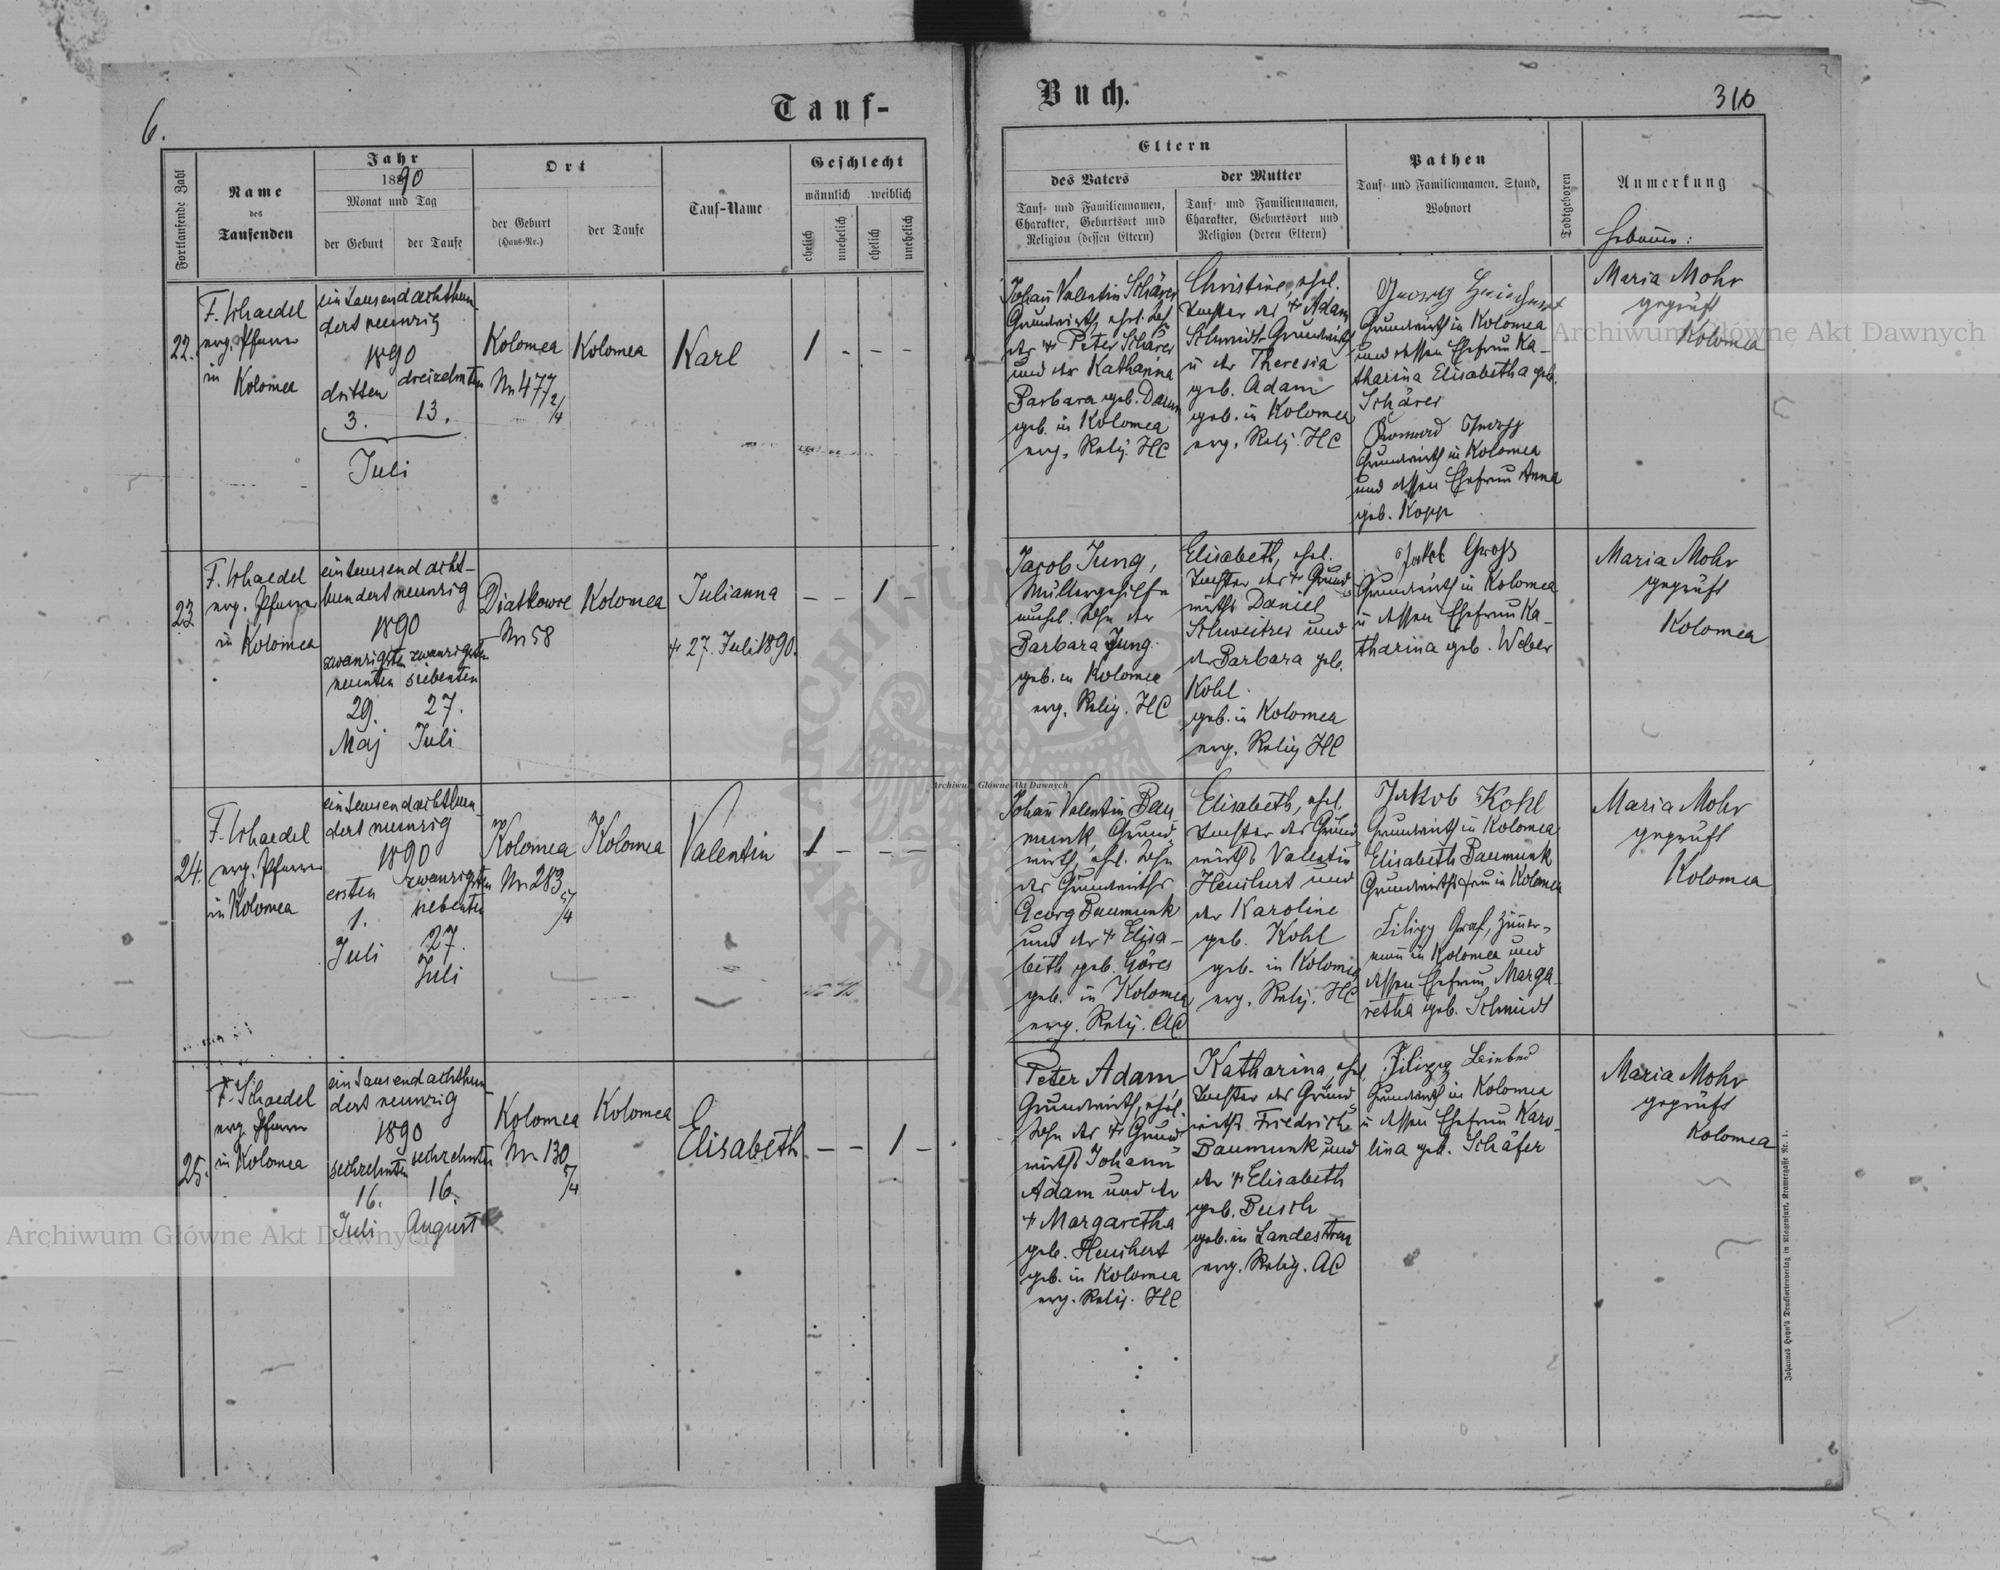 6.
Tauf-
Buch.
316
Fortlaufende Zahl
Name
des
Taufenden
Jahr
1890
Monat und Tag
der Geburt
der Taufe
Ort
der Geburt
(Haus-Nr.)
der Taufe
Tauf-Name
Geschlecht
männlich
weiblich
ehelich
unehelich
ehelich
unehelich
Eltern
des Vaters
Tauf- und Familiennamen,
Charakter, Geburtsort und
Religion (dessen Eltern)
der Mutter
Tauf- und Familiennamen,
Charakter, Geburtsort und
Religion (deren Eltern)
Pathen
Tauf- und Familiennamen, Stand,
Wohnort
Todtgeboren
Anmerkung
22.
F. Schaedel
evg. Pfarrer
in
Kolomea
eintausendachthun-
dert neunzig
1890
dritten
dreizehnten
3.
13.
Juli
Kolomea
Nr 477 2/4
Kolomea
Karl
1 - - -
Johann Valentin Schärer
Grundwirth, ehel. Sohn
des + Peter Schärer
und der Katharina
Barbara geb. Daum
geb. in Kolomea
evg. Relig. HC
Christine, ehel.
Tochter des + Adam
Schmidt Grundwirth
u der Theresia
geb. Adam
geb. in Kolomea
evg. Relig. HC
Georg
Grundwirth in Kolomea
und dessen Ehefrau Ka-
tharina Elisabetha geb.
Schärer
Konrad
Grundwirth in Kolomea
und dessen Ehefrau Anna
geb. Kopp
Maria Mohr
geprüft
Kolomea
23
F. Schaedel
evg. Pfarrer
in Kolomea
eintausendacht-
hundertneunzig
1890
zwanzigsten zwanzigsten
neunten siebenten
29. 27.
Maj Juli
Diatkowce
Nr 58
Kolomea
Julianna
+ 27. Juli 1890.
- - 1 -
Jacob Jung,
Müllergehilfe
unehel. Sohn der
Barbara Jung
geb. in Kolomea
evg. Relig. HC
Elisabeth, ehel.
Tochter des + Grund-
wirths Daniel
Schweitzer und
der Barbara geb.
Kohl
geb. in Kolomea
evg. Relig HC
Jakob Gross
Grundwirth in Kolomea
u dessen Ehefrau Ka-
tharina geb. Weber
Maria Mohr
geprüft
Kolomea
24.
F. Schaedel
evg. Pfarrer
in Kolomea
eintausendachthun-
dert neunzig
1890
ersten zwanzigsten
siebenten
1. 27.
Juli Juli
Kolomea
Nr 283 5/4
Kolomea
Valentin
1 - - -
Johann Valentin Bau-
munk, Grund-
wirth, ehel. Sohn
des Grundwirths
Georg Baumunk
und der + Elisa-
beth geb. Göres
geb. in Kolomea
evg. Relig. AC
Elisabeth, ehel.
Tochter des Grund-
wirths Valentin
Heuchert und
der Karoline
geb. Kohl
geb. in Kolomea
evg. Relig. HC
Jakob Kohl
Grundwirth in Kolomea
Elisabeth Baumunk
Grundwirthsfrau in Kolomea
Filipp Graf, Zimmer-
mann in Kolomea und
dessen Ehefrau Marga-
retha geb. Schmidt
Maria Mohr
geprüft
Kolomea
25.
F. Schaedel
evg. Pfarrer
in Kolomea
eintausendachthun-
dert neunzig
1890
sechzehnten sechzehnten
16. 16.
Juli August
Kolomea
Nr 130 5/4
Kolomea
Elisabeth
- - 1 -
Peter Adam
Grundwirth, ehel.
Sohn des + Grund-
wirths Johann
Adam und der
+ Margaretha
geb. Heuchert
geb. in Kolomea
evg. Relig. HC
Katharina, ehel.
Tochter des Grund-
wirths Friedrich
Baumunk und
der + Elisabeth
geb. Busch
geb. in Landestreu
evg. Relig. AC
Filipp
Grundwirth in Kolomea
u dessen Ehefrau Karo-
lina geb. Schäfer
Maria Mohr
geprüft
Kolomea
Johannes Heyn's Drucksortenverlag in Klagenfurt, Kramergasse Nr. 1.
Archiwum Główne Akt Dawnych
Archiwum Główne Akt Dawnych
Archiwum Główne Akt Dawnych